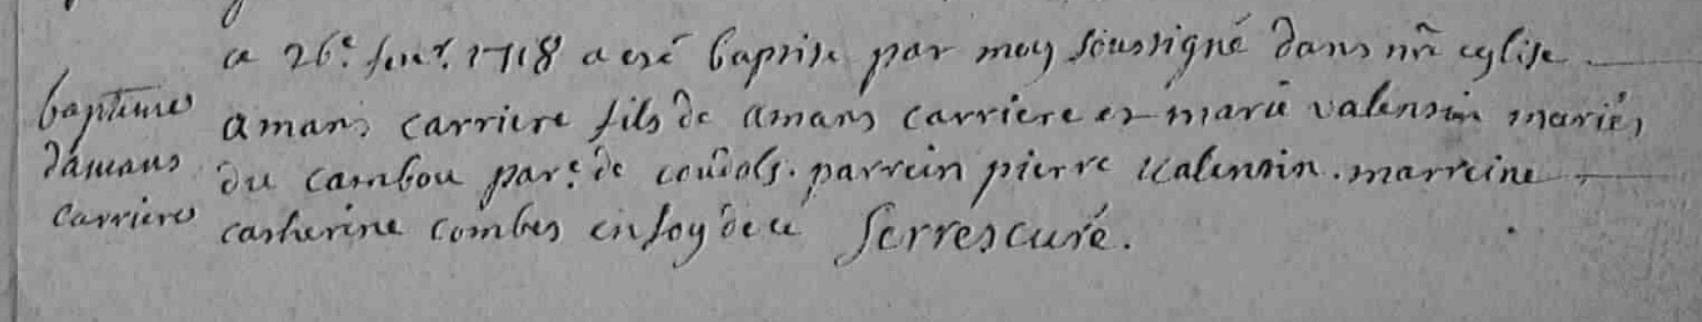 ce 26e. fevr. 1718 a esté baptise par moy soussigné dans nrẽ eglise
baptisme
amans carriere fils de amans carriere et marie valentin mariés
damans
du cambou par.e de coudols. parrein pierre valentin. marreine
carriere
catherine combes en foy de ce Serres curé.